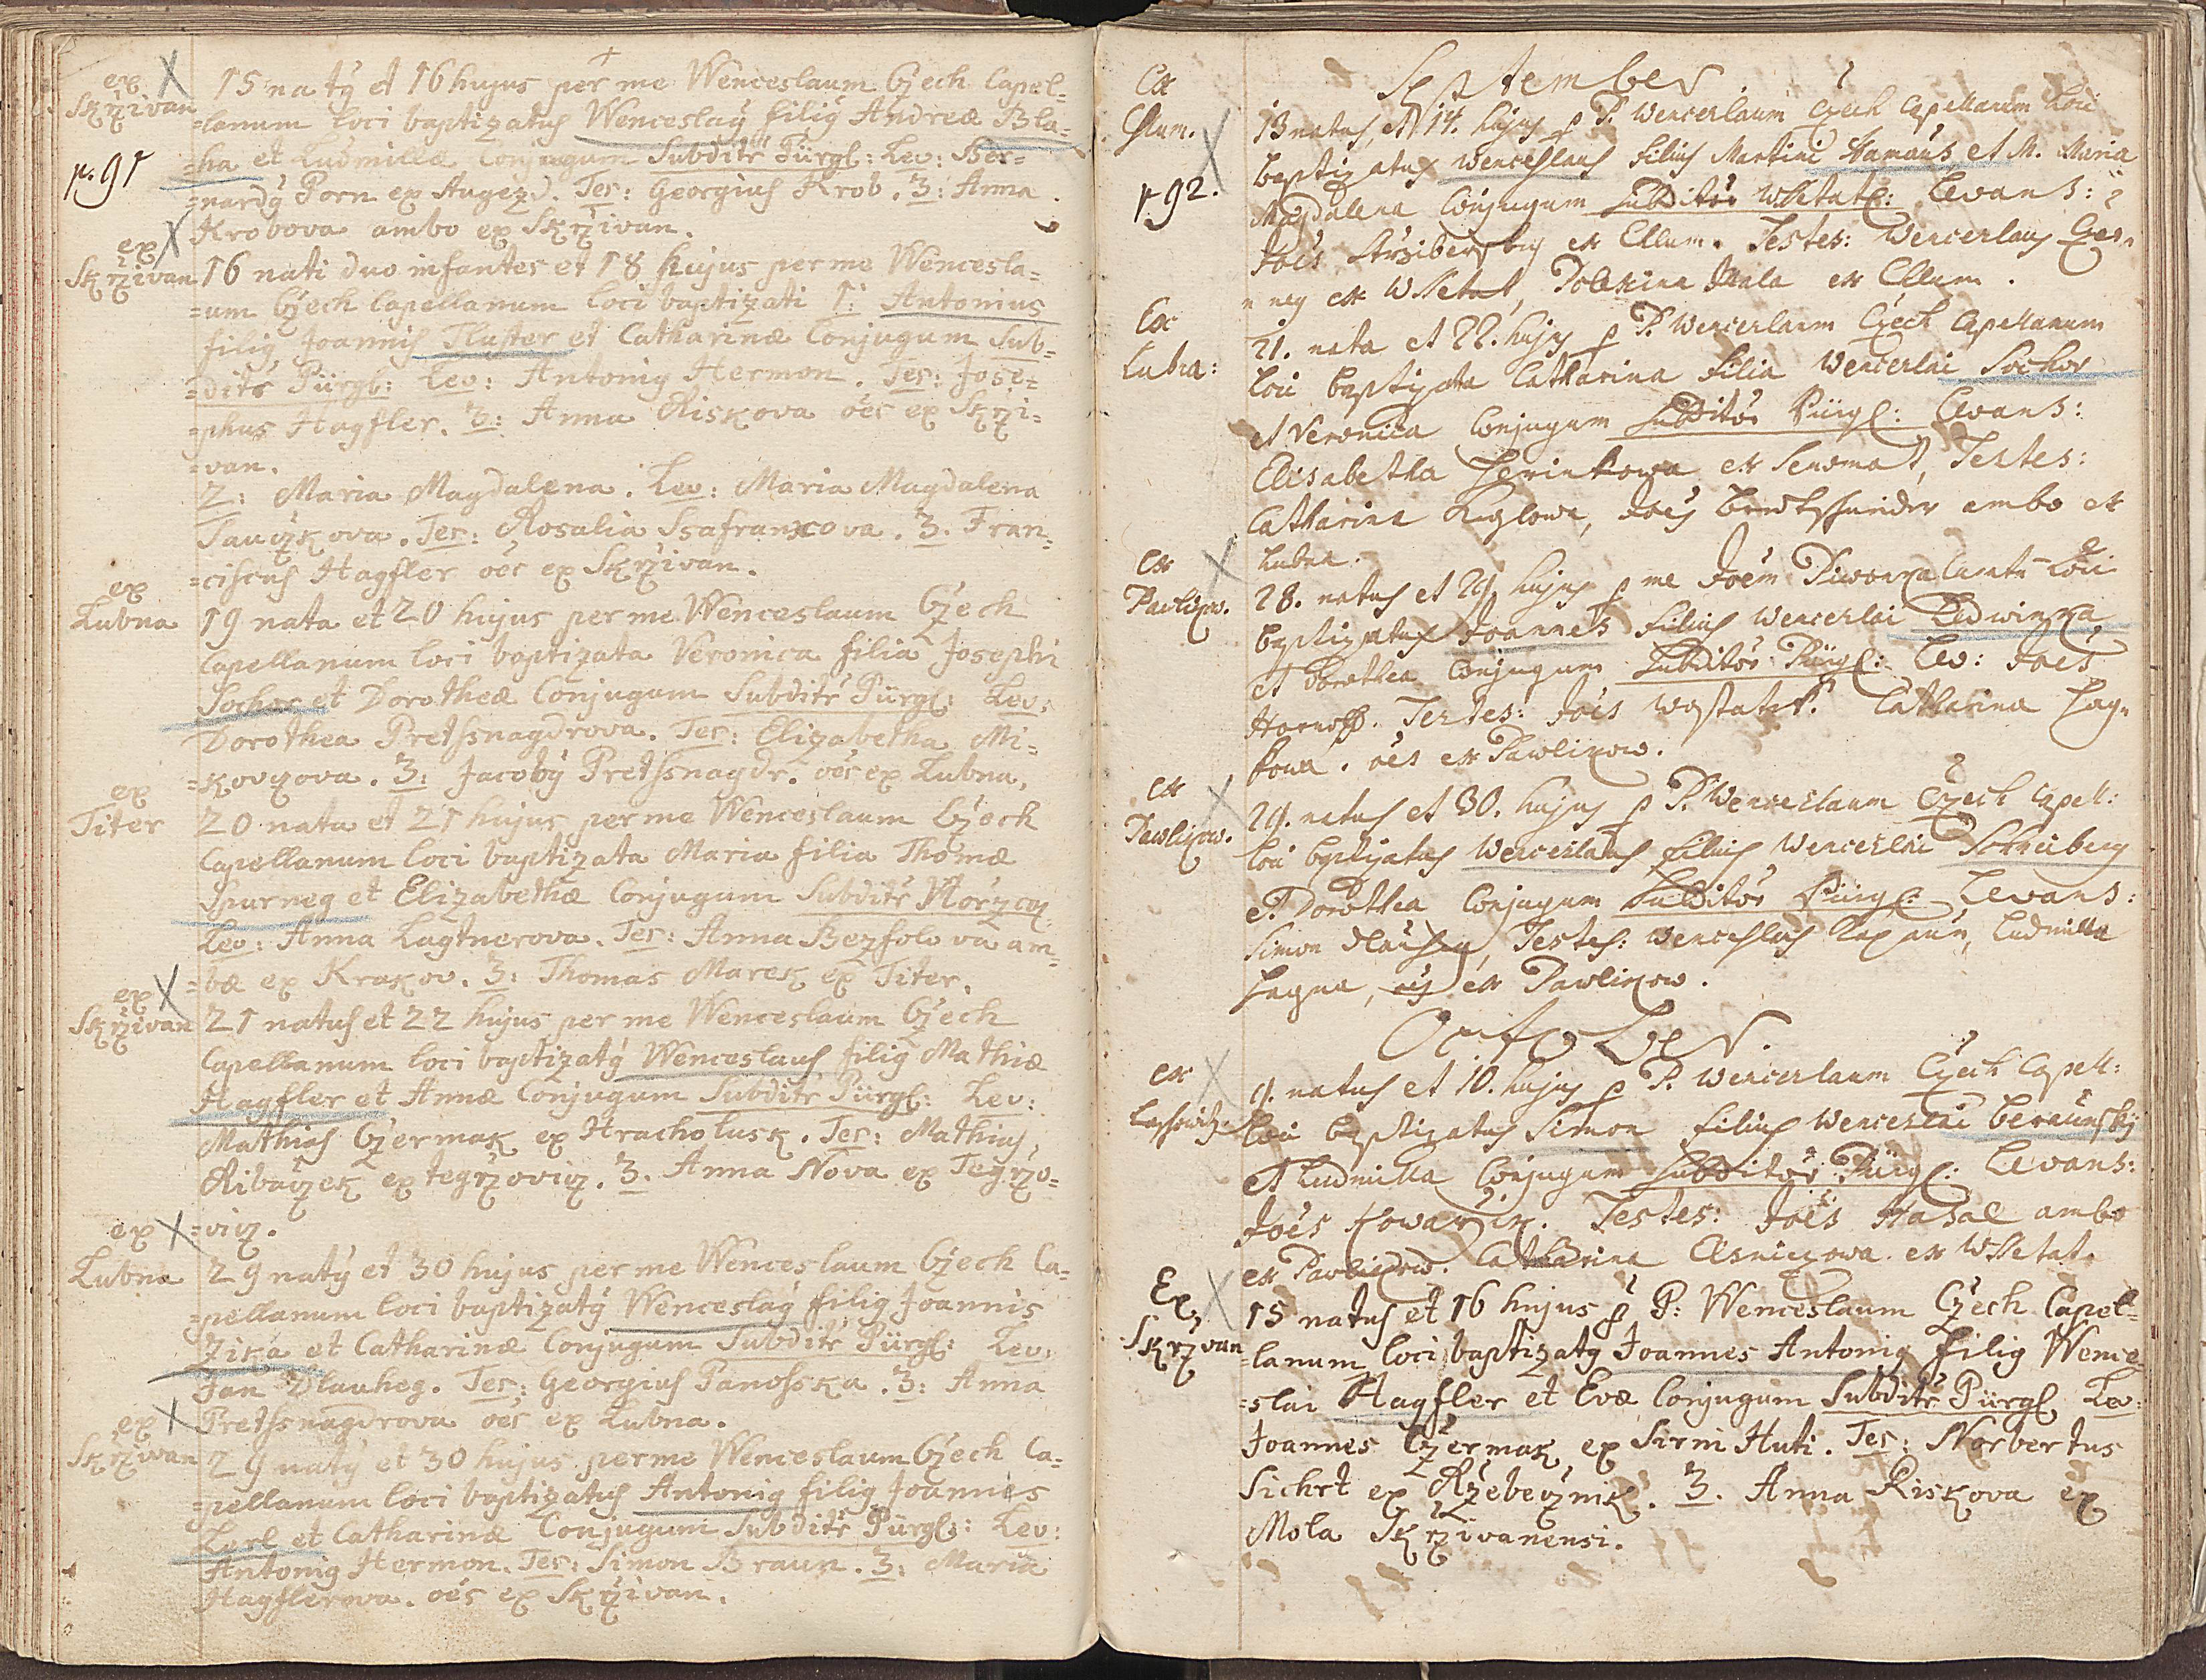 ex
Skrživan
15 natý et 16 hujus per me Wenceslaum Czech Capel=
=lanum loci baptizatus Wenceslaý filiý Andreæ Bla=
=ha et Ludmillæ Conjugum Subditr Pürgl: Lev: Ber=
p. 91
=nardý Porn ex Augezd. Tes: Georgius Krob. 3: Anna
Krobova ambo ex Skrživan.
ex
Skrživan
16 nati duo infantes et 18 hujus per me Wencesla=
=um Czech Capellanum loci baptizati 1: Antonius
filiý Joannis Tluster et Catharinæ Conjugum Sub=
=ditr Pürgl: Lev: Antoniý Hermon. Tes: Jose=
=phus Hagfler. 3: Anna Riskova oẽs ex Skrži=
=van.
2: Maria Magdalena. Lev: Maria Magdalena
Sauczkova. Tes: Rosalia Ssafrankova. 3. Fran=
=ciscus Hagfler oẽs ex Skrživan.
ex
Lubna
19 nata et 20 hujus per me Wenceslaum Czech
Capellanum loci baptizata Veronica filia Josephi
Sochor et Dorotheæ Conjugum Subditr Pürgl: Lev:
Dorothea Pretssnagdrova. Tes: Elizabetha Mi=
=kovzova. 3: Jacobý Pretssnagdr. oẽs ex Lubna.
ex
Titer
20 nata et 21 hujus per me Wenceslaum Czech
Capellanum loci baptizata Maria filia Thomæ
Spurneg et Elizabethæ Conjugum Subditr
Lev: Anna Lagtnerova. Tes: Anna Bezfolova am=
=bæ ex Krakov. 3: Thomas Marek ex Titer.
ex
Skrživan
21 natus et 22 hujus per me Wenceslaum Czech
Capellanum loci baptizatý Wenceslaus filiý Mathiæ
Hagfler et Annæ Conjugum Subditr Pürgl: Lev:
Mathias Czermak ex Hracholusk. Tes: Mathias
Ribaczek ex tegržovicz. 3. Anna Nova ex Tegržo=
=vicz.
ex
Lubna
29 natý et 30 hujus per me Wenceslaum Czech Ca=
=pellanum loci baptizatý Wenceslaý filiý Joannis
Zika et Catharinæ Conjugum Subditr Pürgl: Lev:
Jan Dlauheg. Tes: Georgius Panosska. 3: Anna
Pretssnagdrova oẽs ex Lubna.
ex
Skrživan
29 natý et 30 hujus per me Wenceslaum Czech Ca=
=pellanum loci baptizatus Antoniý filiý Joannis
Lerl et Catharinæ Conjugum Subditr Pürgl: Lev:
Antoniý Hermon. Tes: Simon Braun. 3: Maria
Hagflerova. oẽs ex Skrživan.
September
Ex
Chum.
13 natus, et 14. hujus p P. Wenceslaum Czech Capellanum Loci
baptizatus Wenceslaus Filius Martini Hamaus et M. Maria
p 92.
Magdalena Conjugum Subditor Wssetat: Levans:
Joẽs Strziberský ex Chum. Testes: Wenceslaus Czer=
neý ex Wssetat, Mala ex Chum.
Ex
Lubna:
21. nata et 22. hujus p P. Wenceslaum Czech Capellanum
Loci baptizata Catharina Filia Wenceslai Sochor
et Veronica Conjugum Subditor Pürgl: Levans:
Elisabetha ex Senomat, Testes:
Catharina Joẽs ambo ex
Lubna.
ex
Pawlikow.
28. natus et 29 hujus p me Joẽm Loci
baptizatus Joannes Filius Wenceslai Ledwinka
et Dorothea Conjugum Subditor Pürgl: Lev: Joẽs
Testes: Joẽs Catharina Hag=
kowa. oẽs ex Pawlikow.
ex
Pawlikow.
29. natus et 30. hujus p P. Wenceslaum Czech Capell:
Loci baptizatus Wenceslaus filius Wenceslai Schreiberg
et Dorothea Conjugum Subditor Pürgl: Levans:
Simon Testes: Wenceslaus Ludmilla
Hagna, ex Pawlikow.
October.
ex
9. natus et 10. hujus p P. Wenceslaum Czech Capell:
Loci baptizatus Simon filius Wenceslai Beraunský
et Ludmilla Conjugum Subditor Pürgl: Levans:
Joẽs Kowarzik. Testes: Joẽs ambo
ex Pawlikow. Catharina ex Wssetat.
Ex
Skržvan
15 natus et 16 hujus p P: Wenceslaum Czech Capel=
=lanum loci baptizatý Joannes Antoniý filiý Wence=
=slai Hagfler et Evæ Conjugum Subditr Pürgl Lev:
Joannes Czermak ex Sirni Huti. Tes: Norbertus
Sichrt ex Rzebecznik. 3. Anna Riskova ex
Mola Skrživanensi.